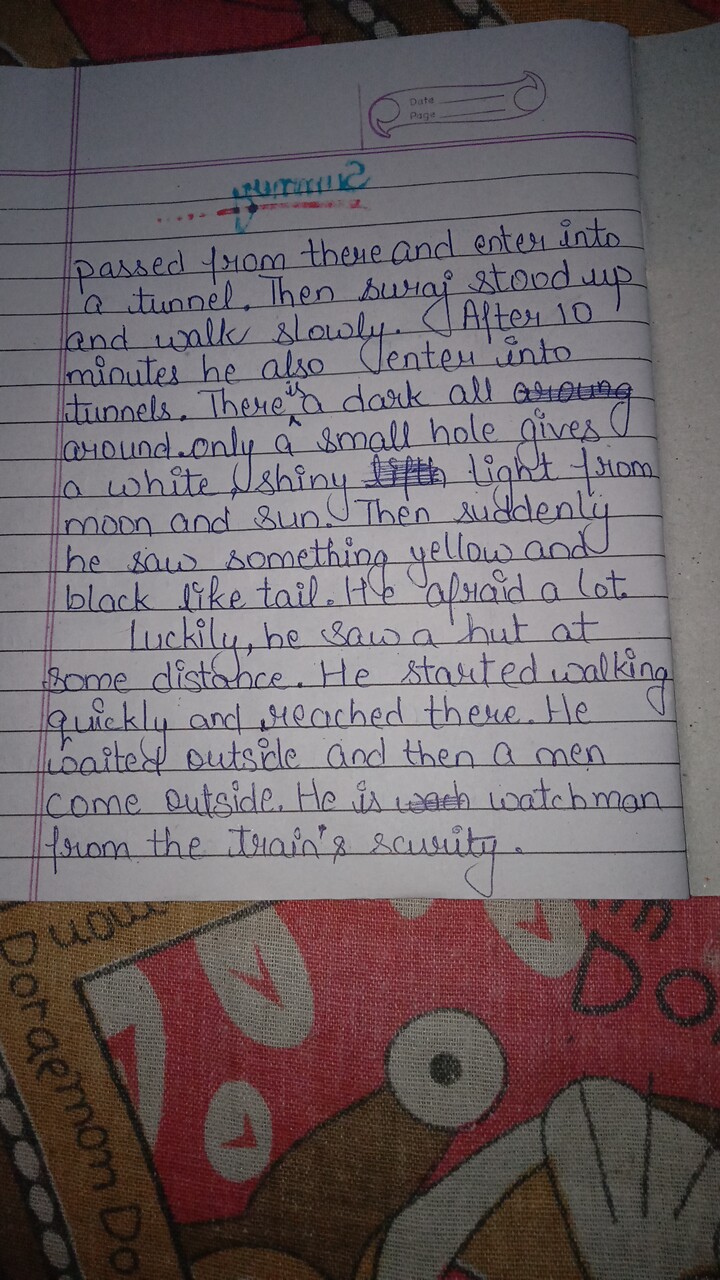 Date
Page
Summury
passed from there and enter into
a tunnel. Then suraj stood up
and walk slowly. After 10
minutes he also enter into
tunnels. There is a dark all aroung
around. only a small hole gives
a white, shiny light from
moon and sun. Then suddenly
he saw something yellow and
black like tail. He afraid a lot.
Luckily, he saw a hut at
some distance. He started walking
quickly and reached there. He
waited outside and then a men
come outside. He is watchman
from the train's scurity.
Doraemon Do
Do